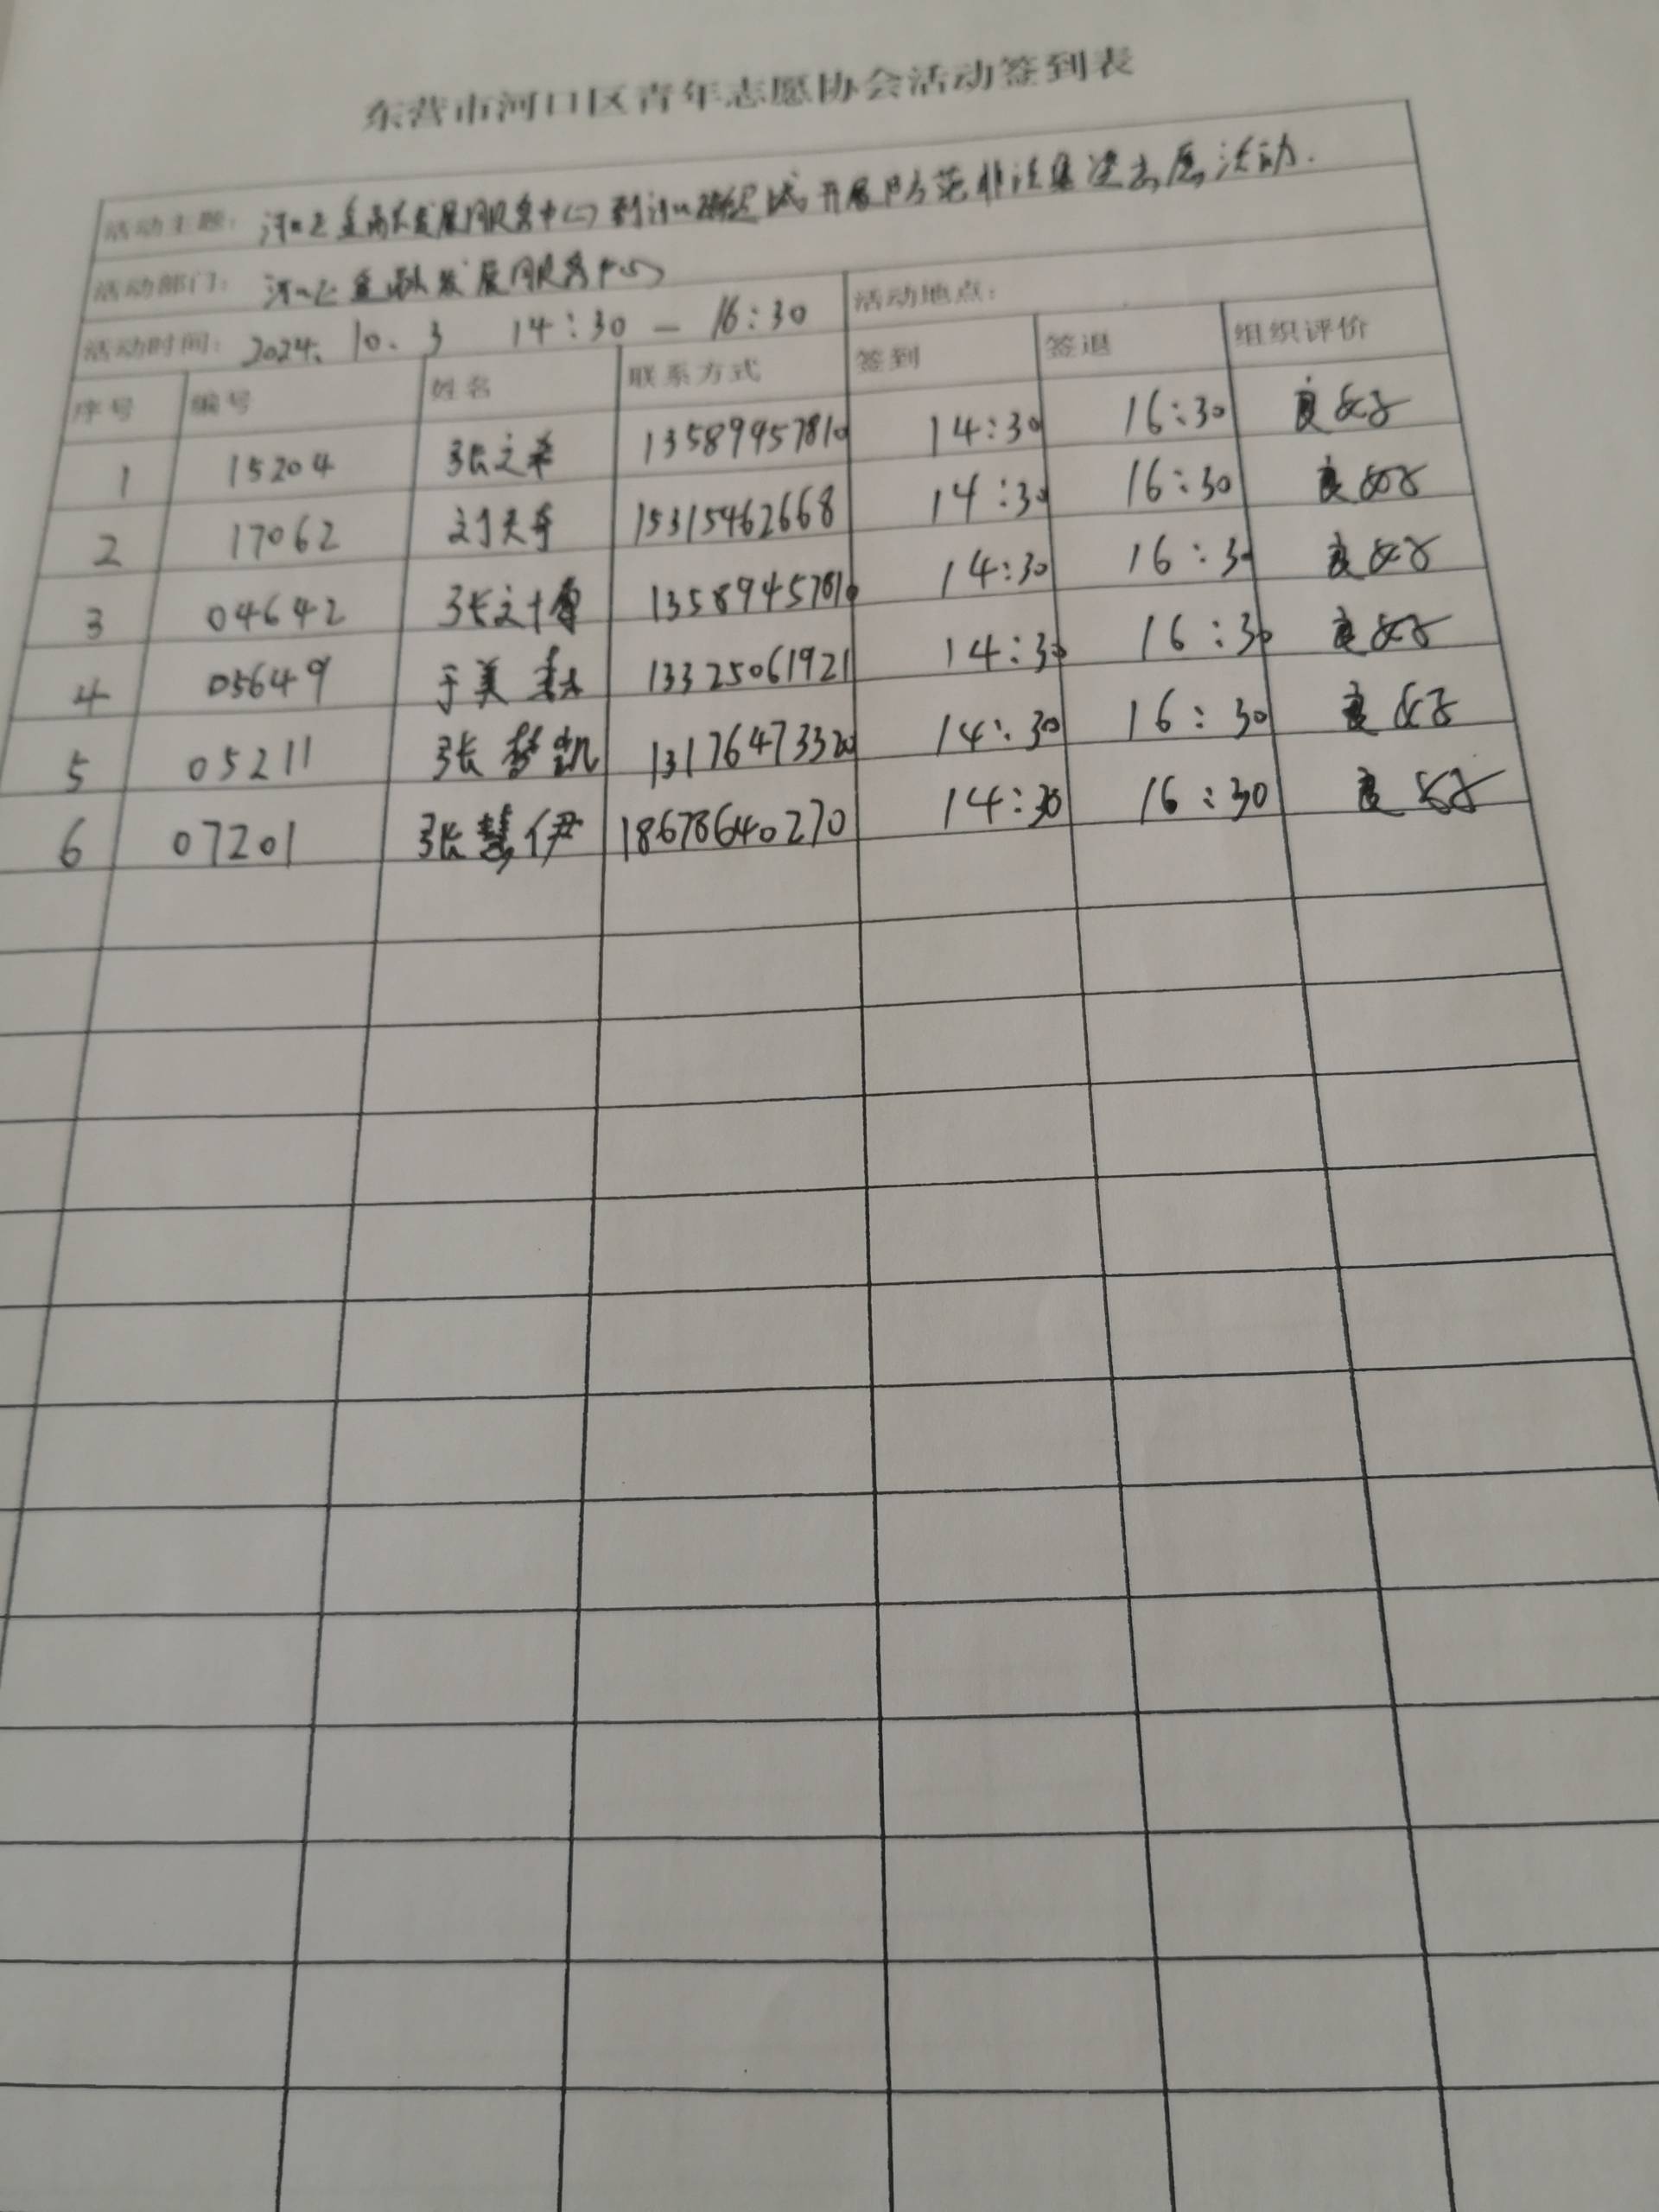 东营市河口区青年志愿协会活动签到表
活动主题: 河口区金融发展服务中心到河口 开展防范非法集资志愿活动.
活动部门: 河口区金融发展服务中心
活动时间: 2024.10.3 14:30 — 16:30 活动地点:
序号 编号 姓名 联系方式 签到 签退 组织评价
1 15204 张文 13589945781 14:30 16:30 良好
2 17062 刘 15315462668 14:30 16:30 良好
3 04642 张文博 1358945781 14:30 16:30 良好
4 05649 于美 13325061921 14:30 16:30 良好
5 05211 张梦凯 13176473320 14:30 16:30 良好
6 07201 张慧伊 18678640270 14:30 16:30 良好